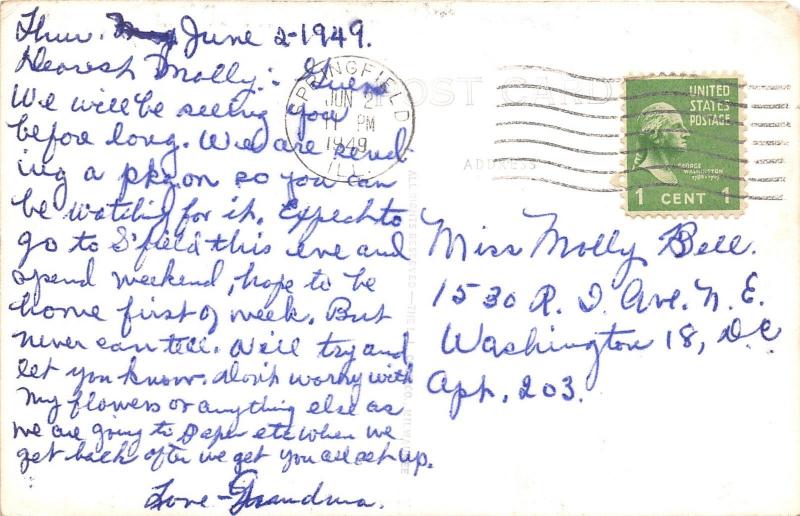 Thur. June 2-1949.
Dearest Molly: Guess
We will be seeing you
before long. We are send
ing a pkg on so you can
be watching for it. Expect to
go to S'field this eve and
spend weekend, hope to be
home first of week. But
never can tell. We'll try and
let you know. Don't worry with
my flowers or anything else as
we are going to paper etc when we
get back after we get you all set up.
Love-Grandma.
SPRINGFIELD
JUN 2
11 PM
1949
ILL.
POST CARD
ADDRESS
UNITED
STATES
POSTAGE
GEORGE
WASHINGTON
1 CENT 1
Miss Molly Bell.
1530 R. I. Ave. N. E.
Washington 18, DC
Apt. 203.
ALL RIGHTS RESERVED